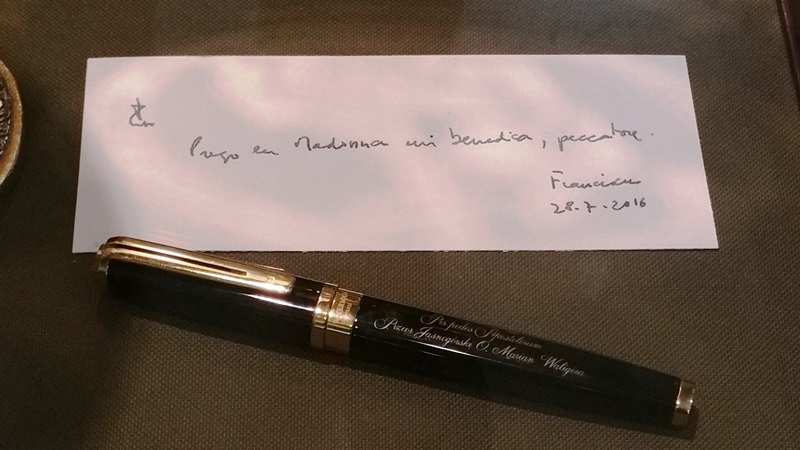 Prego la Madonna mi benedica, peccatore.
Franciscus
28-7-2016
Per pedes Apostolorum
Przeor Jasnogórski O. Marian Waligóra